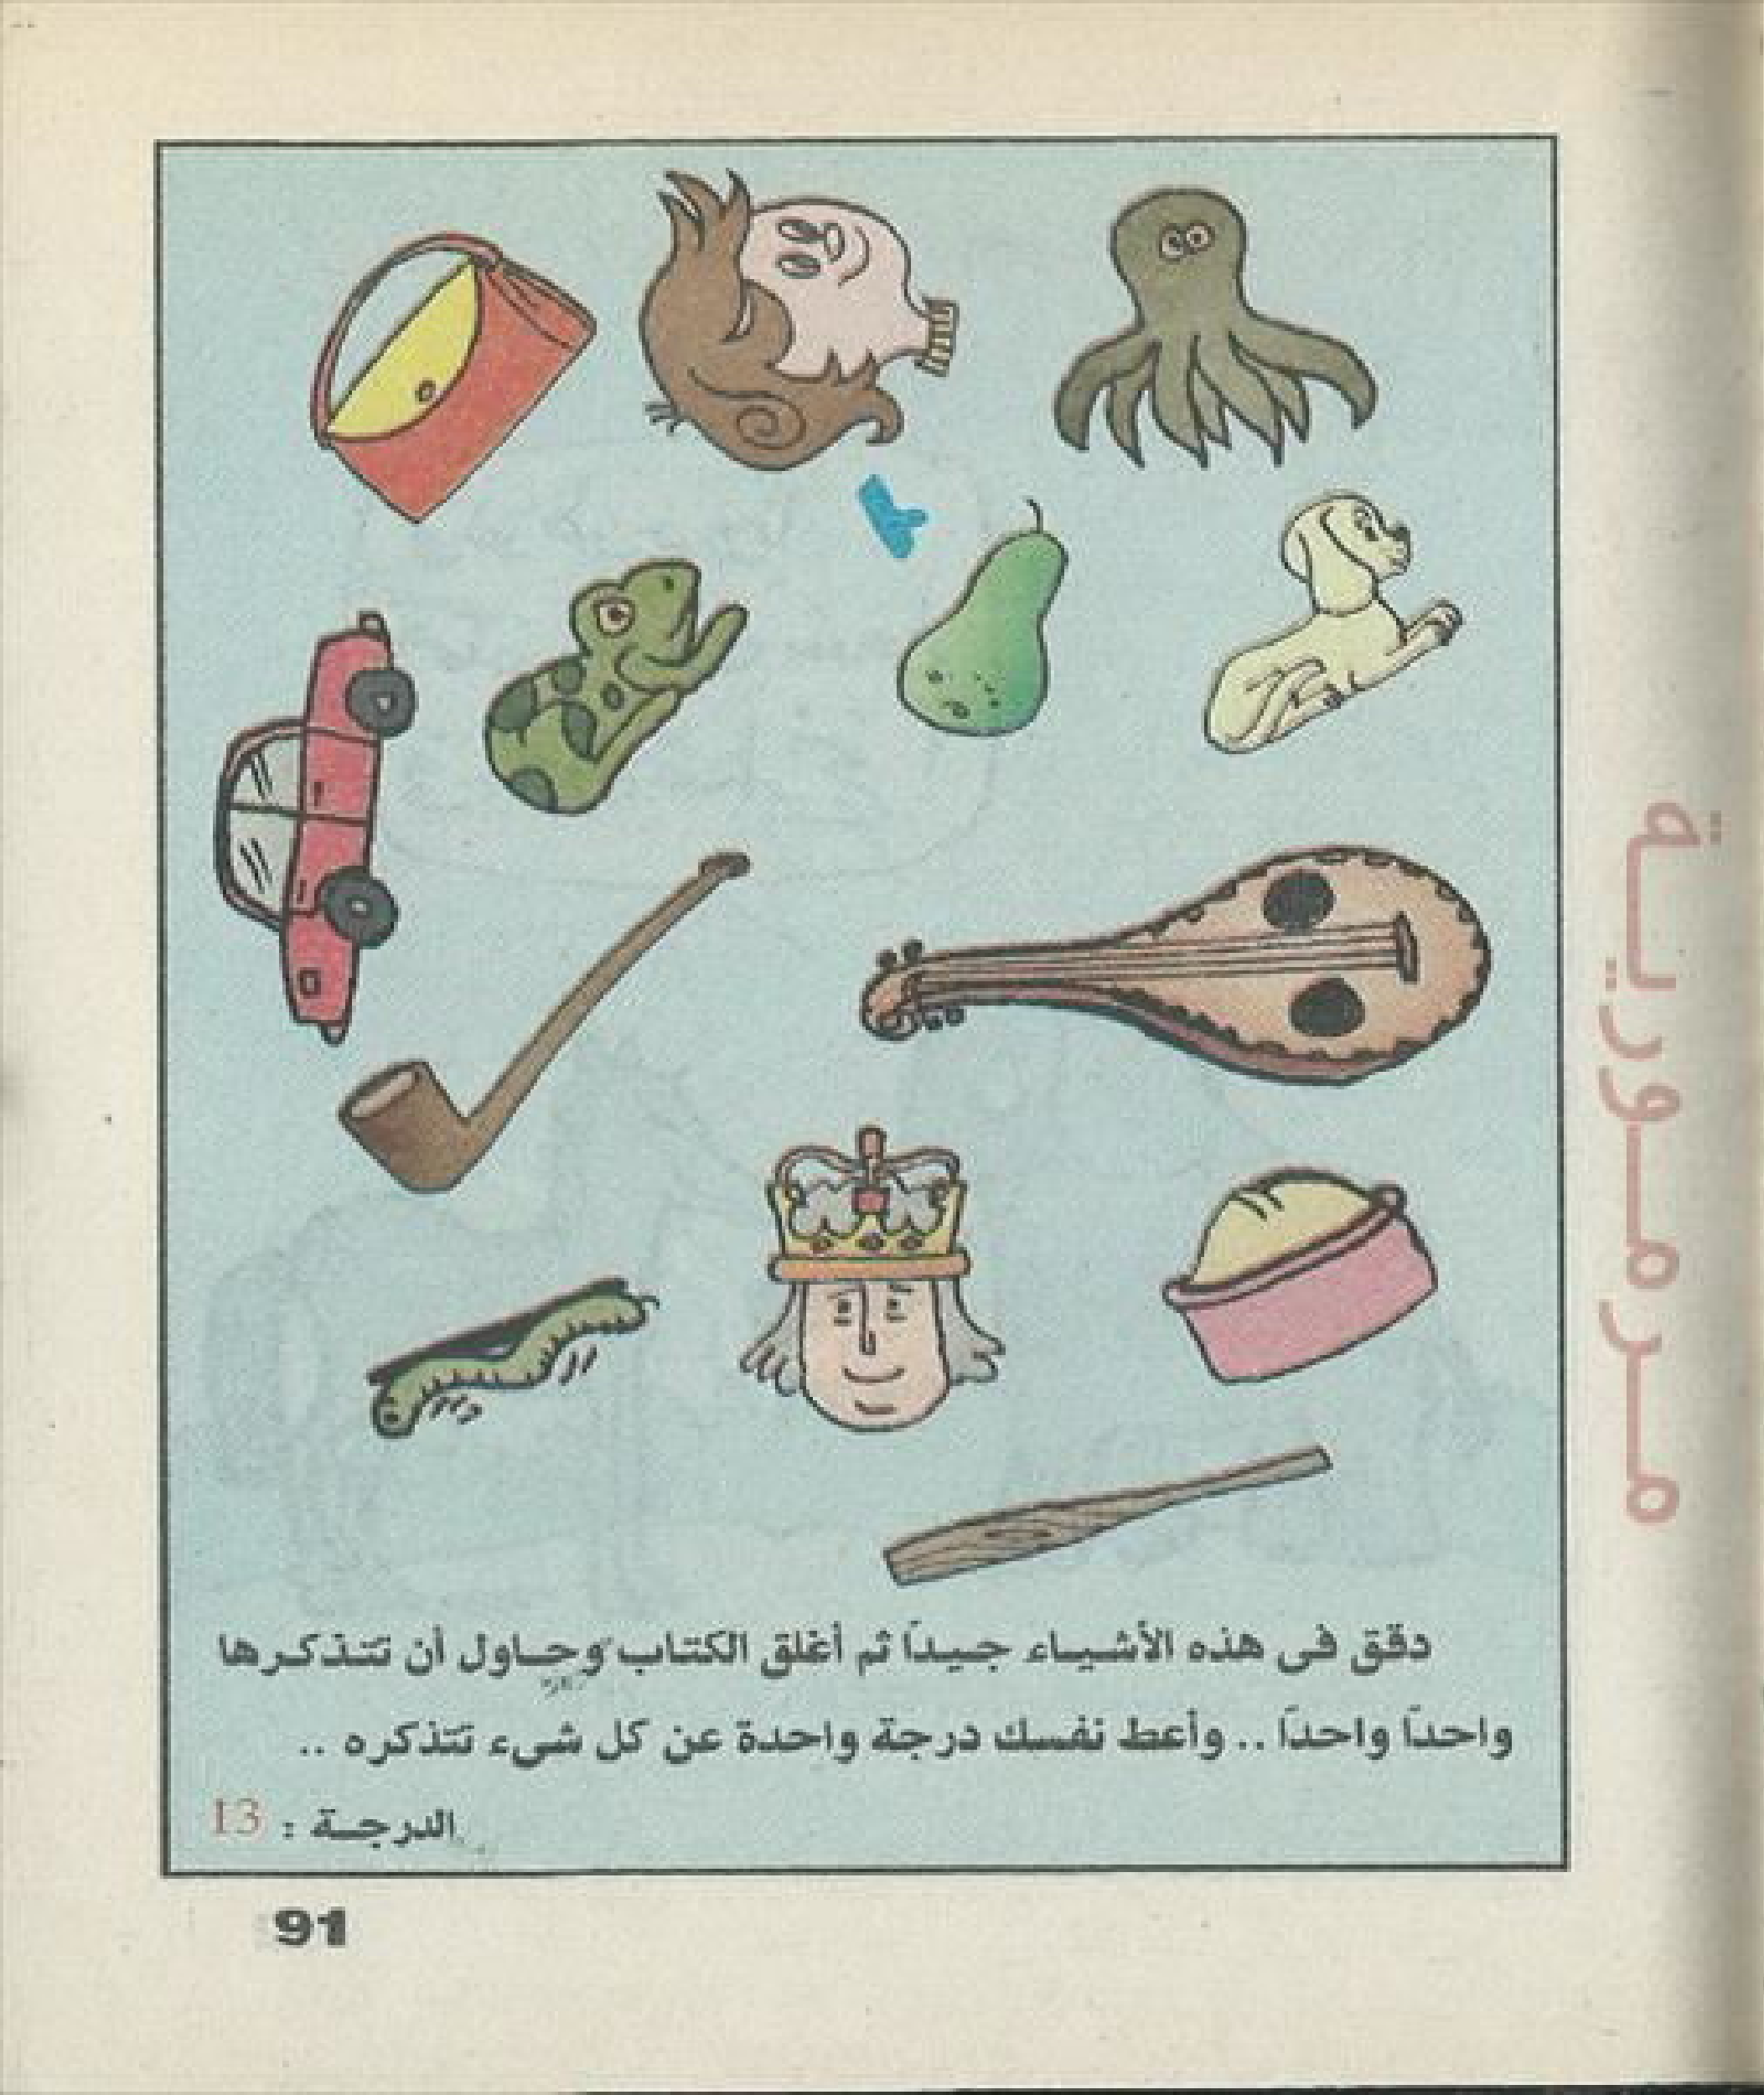 دقق فى هذه الأشيـاء جيـداً ثم أغلق الكتـاب وحـاول أن تتـذكـرها
واحـداً واحـداً .. وأعط نفسك درجة واحدة عن كل شىء تتذكره ..
الدرجـة : 13
91
مــرمــوريــة